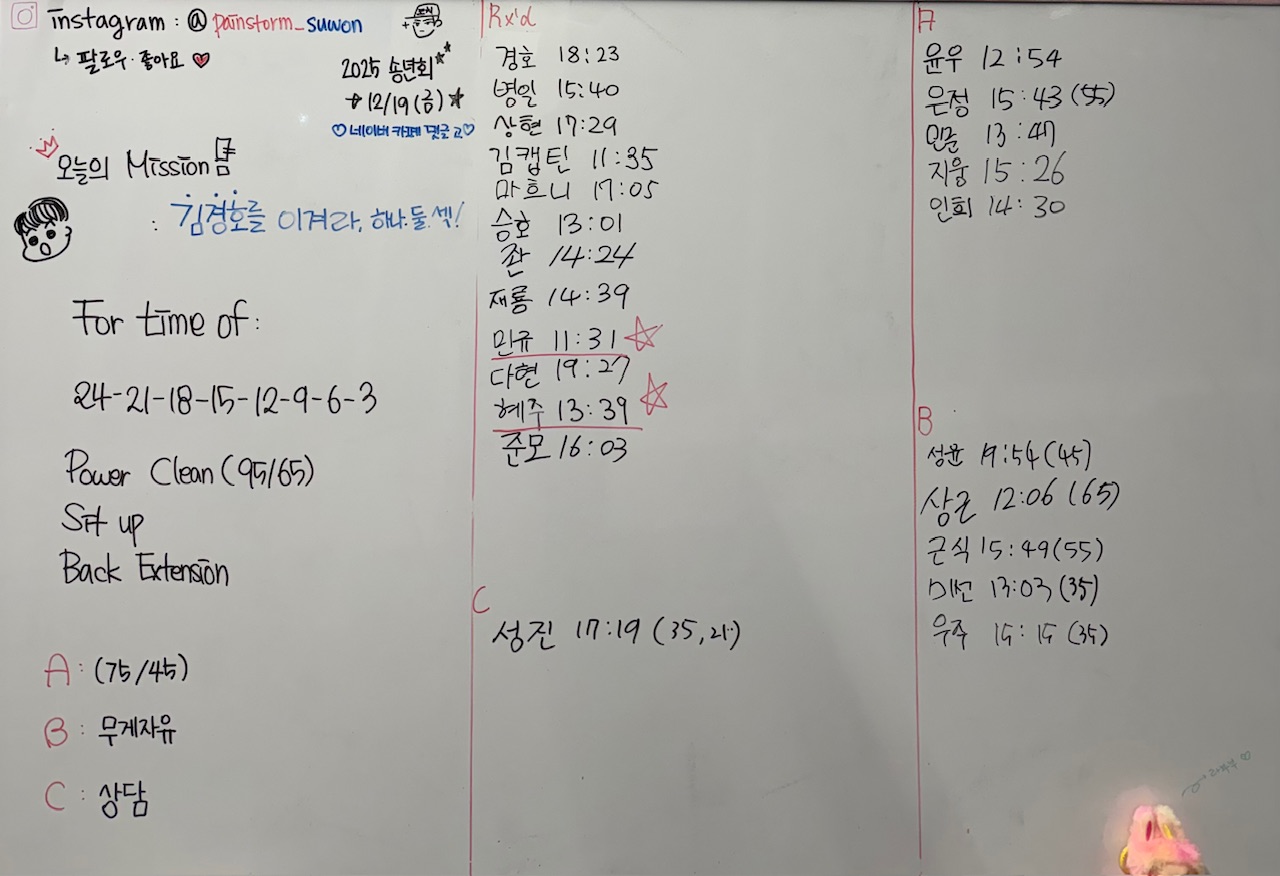 instagram : @painstorm_suwon
↳ 팔로우·좋아요 ♥
2025 송년회
12/19(금)
♡네이버 카페 댓글 고♡
오늘의 Mission
: 김경호를 이겨라, 하나.둘.셋!
For time of:
24-21-18-15-12-9-6-3
Power Clean (95/65)
Sit up
Back Extension
A : (75/45)
B : 무게자유
C : 상담
Rx'd
경호 18:23
병일 15:40
상현 17:29
김캡틴 11:35
마흐니 17:05
승호 13:01
좐 14:24
재룡 14:39
민규 11:31
다현 19:27
혜주 13:39
준모 16:03
C
성진 17:19 (35, 21)
A
윤우 12:54
은정 15:43 (55)
13:47
지웅 15:26
인희 14:30
B
성균 19:54 (45)
상근 12:06 (65)
근식 15:49 (55)
미선 13:03 (35)
우주 15:15 (35)